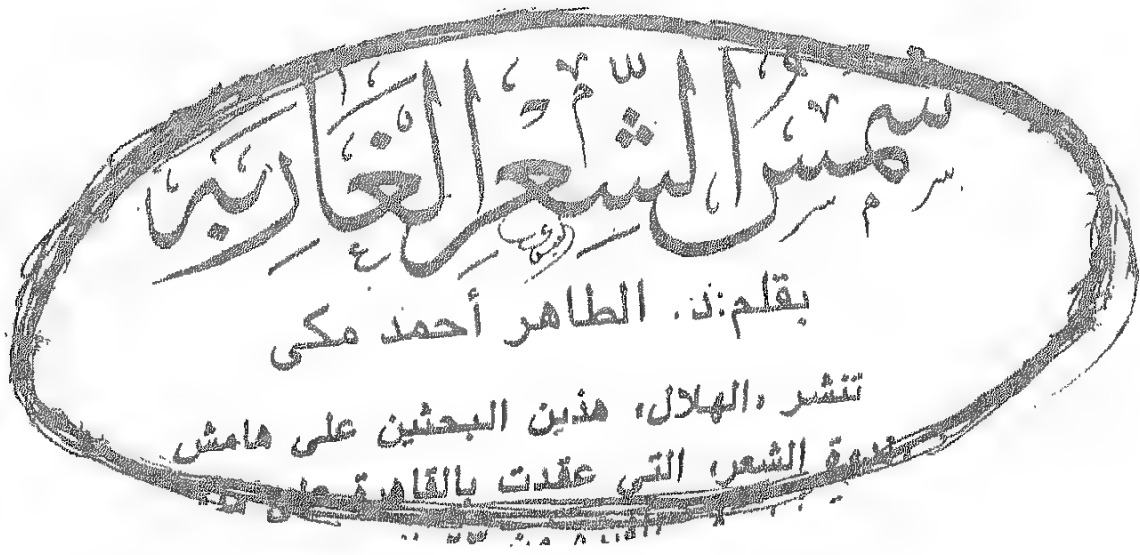 شمس الشعر الغاربة
بقلم: د. الطاهر أحمد مكى
تنشر «الهلال» هذين البحثين على هامش
ندوة الشعر، التي عقدت بالقاهرة على
من ٢٣